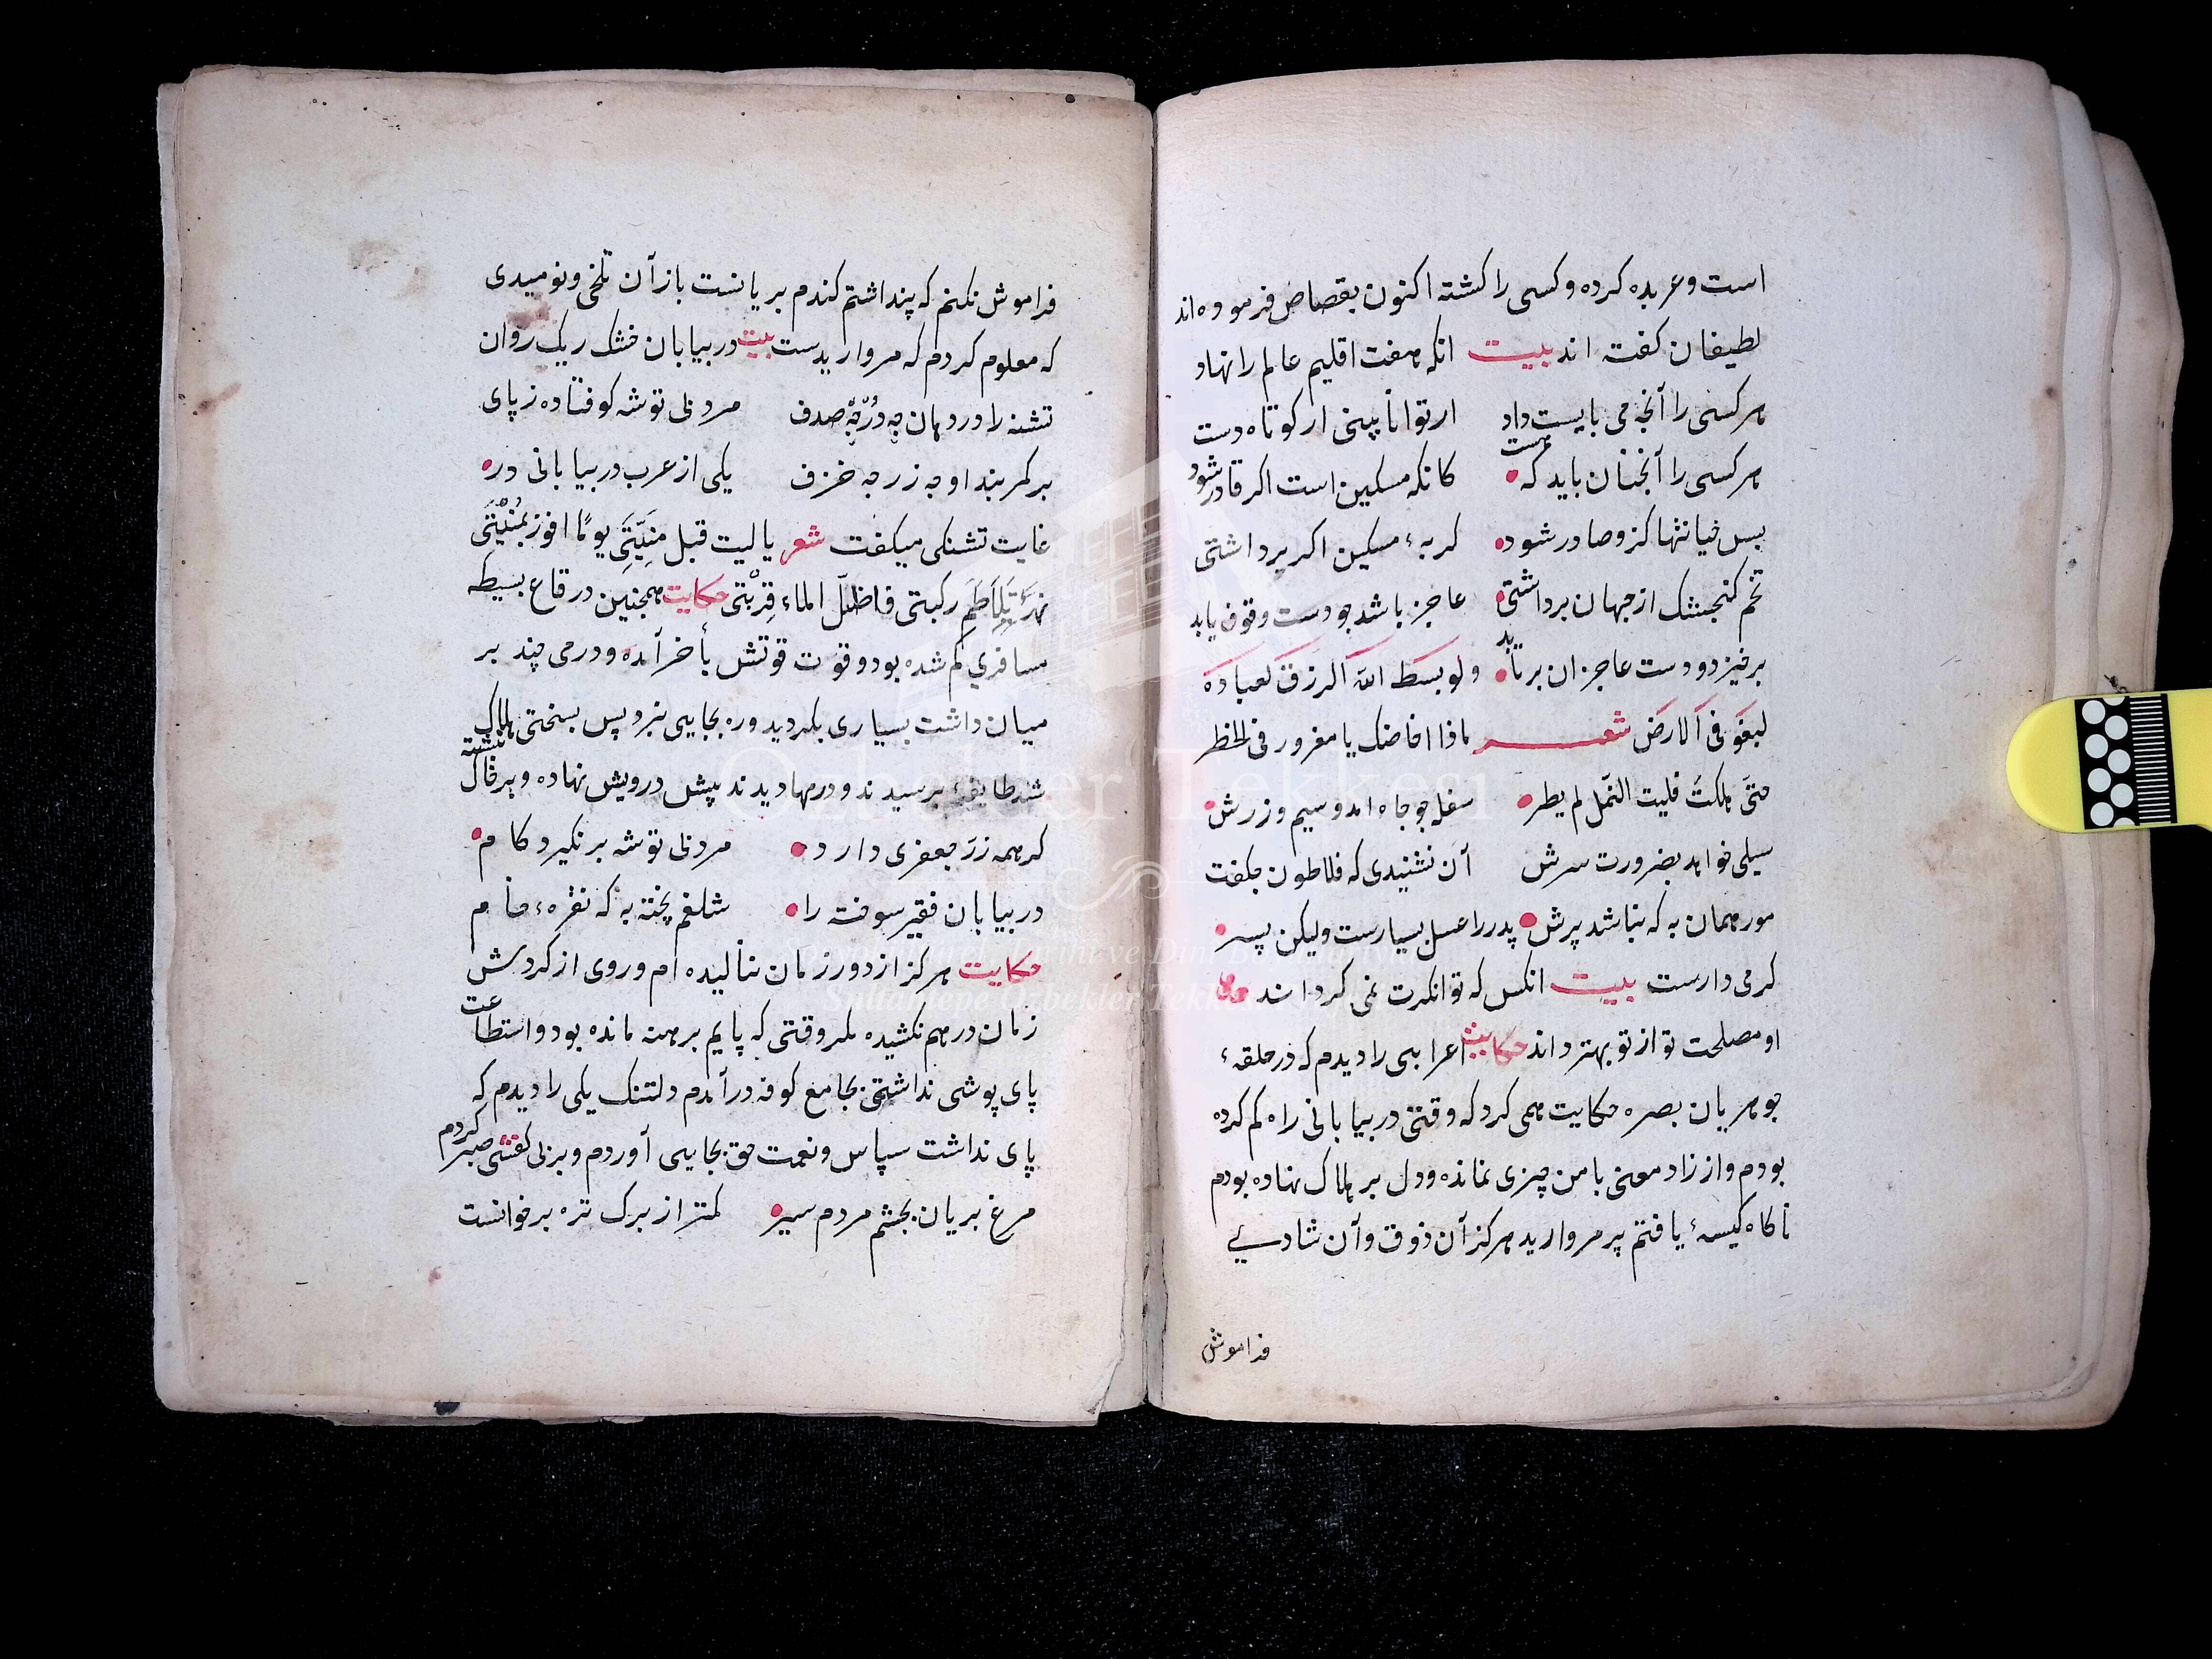 است وعربده کرده وکسی را کشته اکنون بقصاص فرموده اند
لطیفان کفته اند بیت انکه هفت اقلیم عالم را نهاد
هر کسی را آنچه می بایست داد ارتوانا بینی ار کوتاه دست
هر کسی را آنچنان باید که هست کانکه مسکین است اکر قادر شود
بس خیانتها کزو صادر شود کربهٔ مسکین اکر پر داشتی
تخم کنجشک از جهان برداشتی عاجز باشد چو دست وقوف یابد
برخیزد ودست عاجزان برتابد ولو بسط الله الرزق لعباده
لبغو فی الارض شعر ماذا افاضک یا مغرور فی الخطر
حتّی هلکتَ فلیت النّمل لم یطر سفله چو جاه امد وسیم وزرش
سیلی خواهد بضرورت سرش آن نشنیدی که فلاطون چکفت
مور همان به که نباشد پرش پدر را عسل بسیارست ولیکن پسر
کرمی دارست بیت انکس که توانکرت نمی کرداند
او مصلحت تو از تو بهتر داند حکایت اعرابیی را دیدم که در حلقهٔ
جوهریان بصره حکایت همی کرد که وقتی در بیابانی راه کم کرده
بودم واز زاد معنی با من چیزی نمانده ودل بر هلاک نهاده بودم
ناکاه کیسهٔ یافتم پر مروارید هرکز آن ذوق وآن شادی
فراموش
فراموش نکنم که پنداشتم کندم بریانست باز آن تلخی ونومیدی
که معلوم کردم که مرواریدست بیت در بیابان خشک ریک روان
تشنه را در دهان چه دُرّ چه صدف مرد بی توشه کو فتاده ز پای
بر کمربند او چه زر چه خزف یکی از عرب در بیابانی در
غایت تشنکی میکفت شعر یا لیت قبل منیّتی یومًا افوز بمُنْیتی
نهر تلاطم رکبتی فاظلّ املاء قِرْبتی حکایت همچنین در قاع بسیطه
مسافری کم شده بود وقوت قوتش بآخر آمده ودرمی چند بر
میان داشت بسیاری بکردید وره بجایی نبرد پس بسختی هلاک
شد طایفهٔ برسیدند ودرمها دیدند پیش درویش نهاده وبر خاک نبشته
کر همه زرّ جعفری دارد مرد بی توشه برنکیرد کام
در بیابان فقیر سوخته را شلغم پخته به که نقرهٔ خام
حکایت هرکز از دور زمان ننالیده ام وروی از کردش
زمان درهم نکشیده مکر وقتی که پایم برهنه مانده بود واستطاعت
پای پوشی نداشتم بجامع کوفه درآمدم دلتنک یکی را دیدم که
پای نداشت سپاس ونعمت حق بجایی آوردم وبر بی کفشی صبر کردم
مرغ بریان بچشم مردم سیر کمتر از برک تره بر خوانست